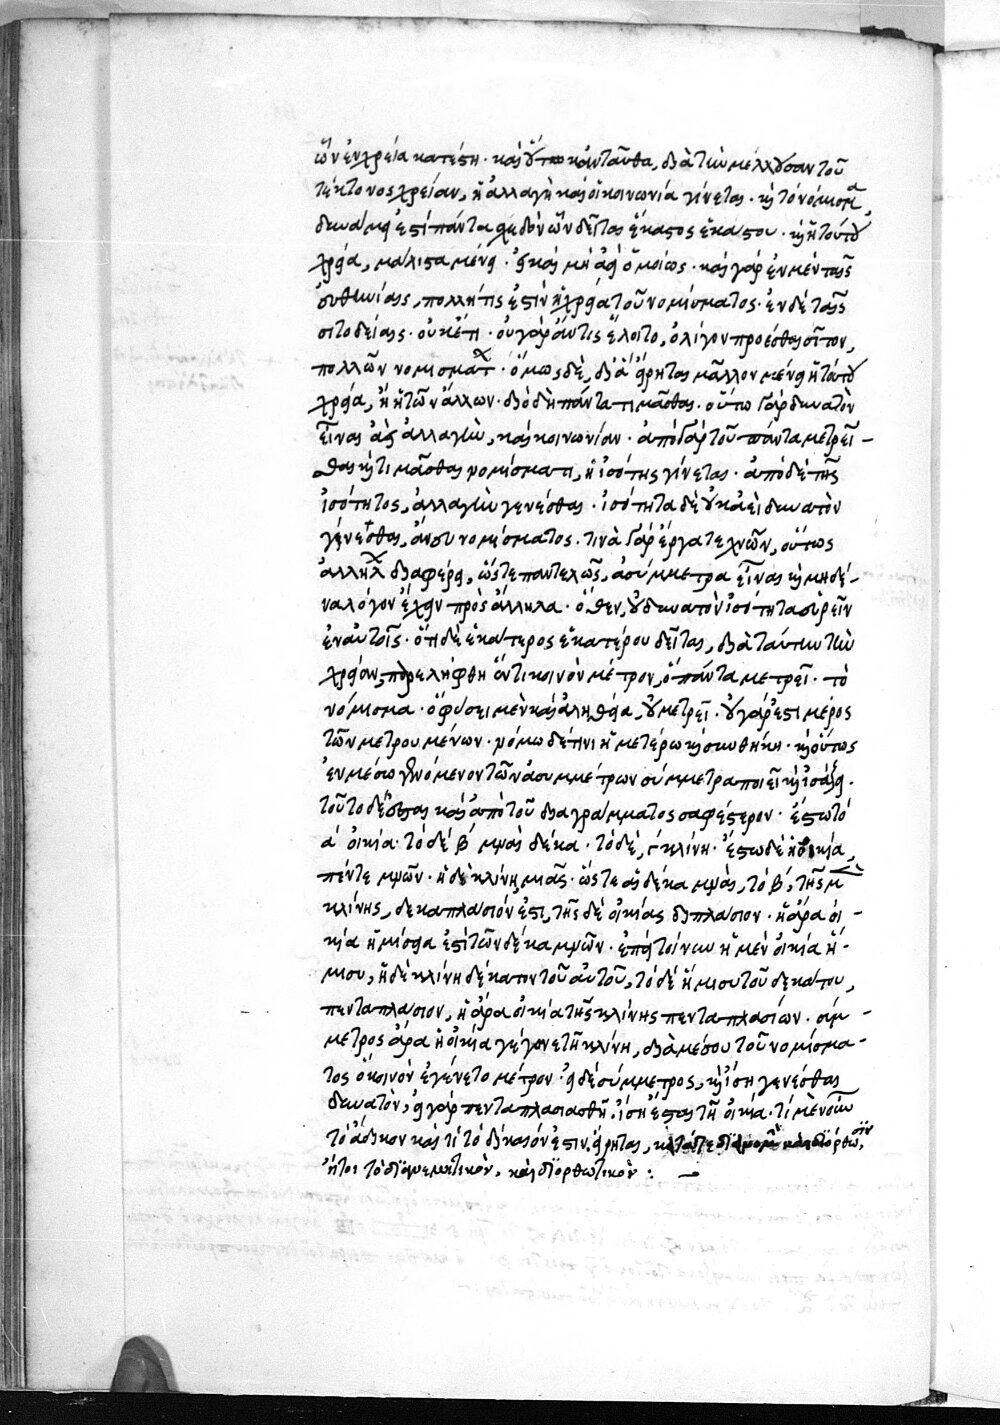 ὧν ἐν χρείᾳ κατέστη· καὶ οὕτω κἀνταῦθα, διὰ τὴν μέλλουσαν τοῦ
τέκτονος χρείαν, ἡ ἀλλαγὴ καὶ ἡ κοινωνία γίνεται· καὶ τὸ νόμισμα,
δυνάμει ἐστὶ πάντα σχεδὸν ὧν δεῖται ἕκαστος ἑκάστου· καὶ ἡ τούτου
χρεία, μάλιστα μένει· εἰ καὶ μὴ ἀεὶ ὁμοίως· καὶ γὰρ ἐν μὲν ταῖς
εὐθηνίαις, πολλή τις ἐστὶν ἡ χρεία τοῦ νομίσματος· ἐν δὲ ταῖς
σιτοδείαις· οὐκέτι· οὐ γὰρ ἄν τις ἕλοιτο, ὀλίγον προέσθαι σῖτον,
πολλῶν νομισμάτων· ὅμως δὲ, διὰ εἴρηται μᾶλλον μένει ἡ τούτου
χρεία, ἢ ἡ τῶν ἄλλων· διὸ δὴ πάντα τιμᾶσθαι· οὕτω γὰρ δυνατὸν
εἶναι ἀεὶ ἀλλαγὴν, καὶ κοινωνίαν· ἀπὸ γὰρ τοῦ πάντα μετρεῖ-
σθαι καὶ τιμᾶσθαι νομίσματι, ἡ ἰσότης γίνεται· ἀπὸ δὲ τῆς
ἰσότητος, ἀλλαγὴν γενέσθαι· ἰσότητα δὲ οὐκ ἀεὶ δυνατὸν
γενέσθαι, ἄνευ νομίσματος· τινὰ γὰρ ἔργα τεχνῶν, οὕτως
ἀλλήλων διαφέρει, ὥστε παντελῶς, ἀσύμμετρα εἶναι καὶ μηδέ-
να λόγον ἔχειν πρὸς ἄλληλα· ὅθεν, οὐ δυνατὸν ἰσότητα εὑρεῖν
ἐν αὐτοῖς· ὅτι δὲ ἑκάτερος ἑκατέρου δεῖται, διὰ ταύτην τὴν
χρείαν, παρελήφθη ἕν τι κοινὸν μέτρον, ὃ πάντα μετρεῖ· τὸ
νόμισμα· ὃ φύσει μὲν καὶ ἀληθείᾳ, οὐ μετρεῖ· οὐ γάρ ἐστι μέρος
τῶν μετρουμένων· νόμῳ δέ τινι ἡμετέρῳ καὶ συνθήκῃ· καὶ οὕτως
ἐν μέσῳ γινόμενον τῶν ἀσυμμέτρων σύμμετρα ποιεῖ καὶ ἰσάζει·
τοῦτο δὲ ἔσται καὶ ἀπὸ τοῦ διαγράμματος σαφέστερον· ἔστω τὸ
α οἰκία· τὸ δὲ β μναῖ δέκα· τὸ δὲ, γ κλίνη· ἔστω δὲ ἡ οἰκία,
πέντε μνῶν· ἡ δὲ κλίνη, μιᾶς· ὥστε αἱ δέκα μναῖ, τὸ β, τῆς μὲν
κλίνης, δεκαπλάσιόν ἐστι, τῆς δὲ οἰκίας διπλάσιον· ἡ ἄρα οἰ-
κία ἡμίσεια ἐστὶ τῶν δέκα μνῶν· ἐπεὶ τοίνυν ἡ μὲν οἰκία ἥ-
μισυ, ἡ δὲ κλίνη δέκατον τοῦ αὐτοῦ, τὸ δὲ ἥμισυ τοῦ δεκάτου,
πενταπλάσιον, ἡ ἄρα οἰκία τῆς κλίνης πενταπλασίων· σύμ-
μετρος ἄρα ἡ οἰκία γέγονε τῇ κλίνῃ, διὰ μέσου τοῦ νομίσμα-
τος ὃ κοινὸν ἐγένετο μέτρον· εἰ δὲ σύμμετρος, καὶ ἴση γενέσθαι
δυνατόν, εἰ γὰρ πενταπλασιασθῇ, ἴση ἔσται τῇ οἰκίᾳ· τί μὲν οὖν
τὸ ἄδικον καὶ τί τὸ δίκαιόν ἐστιν, εἴρηται,
ἤτοι τὸ διανεμητικὸν, καὶ διορθωτικὸν: